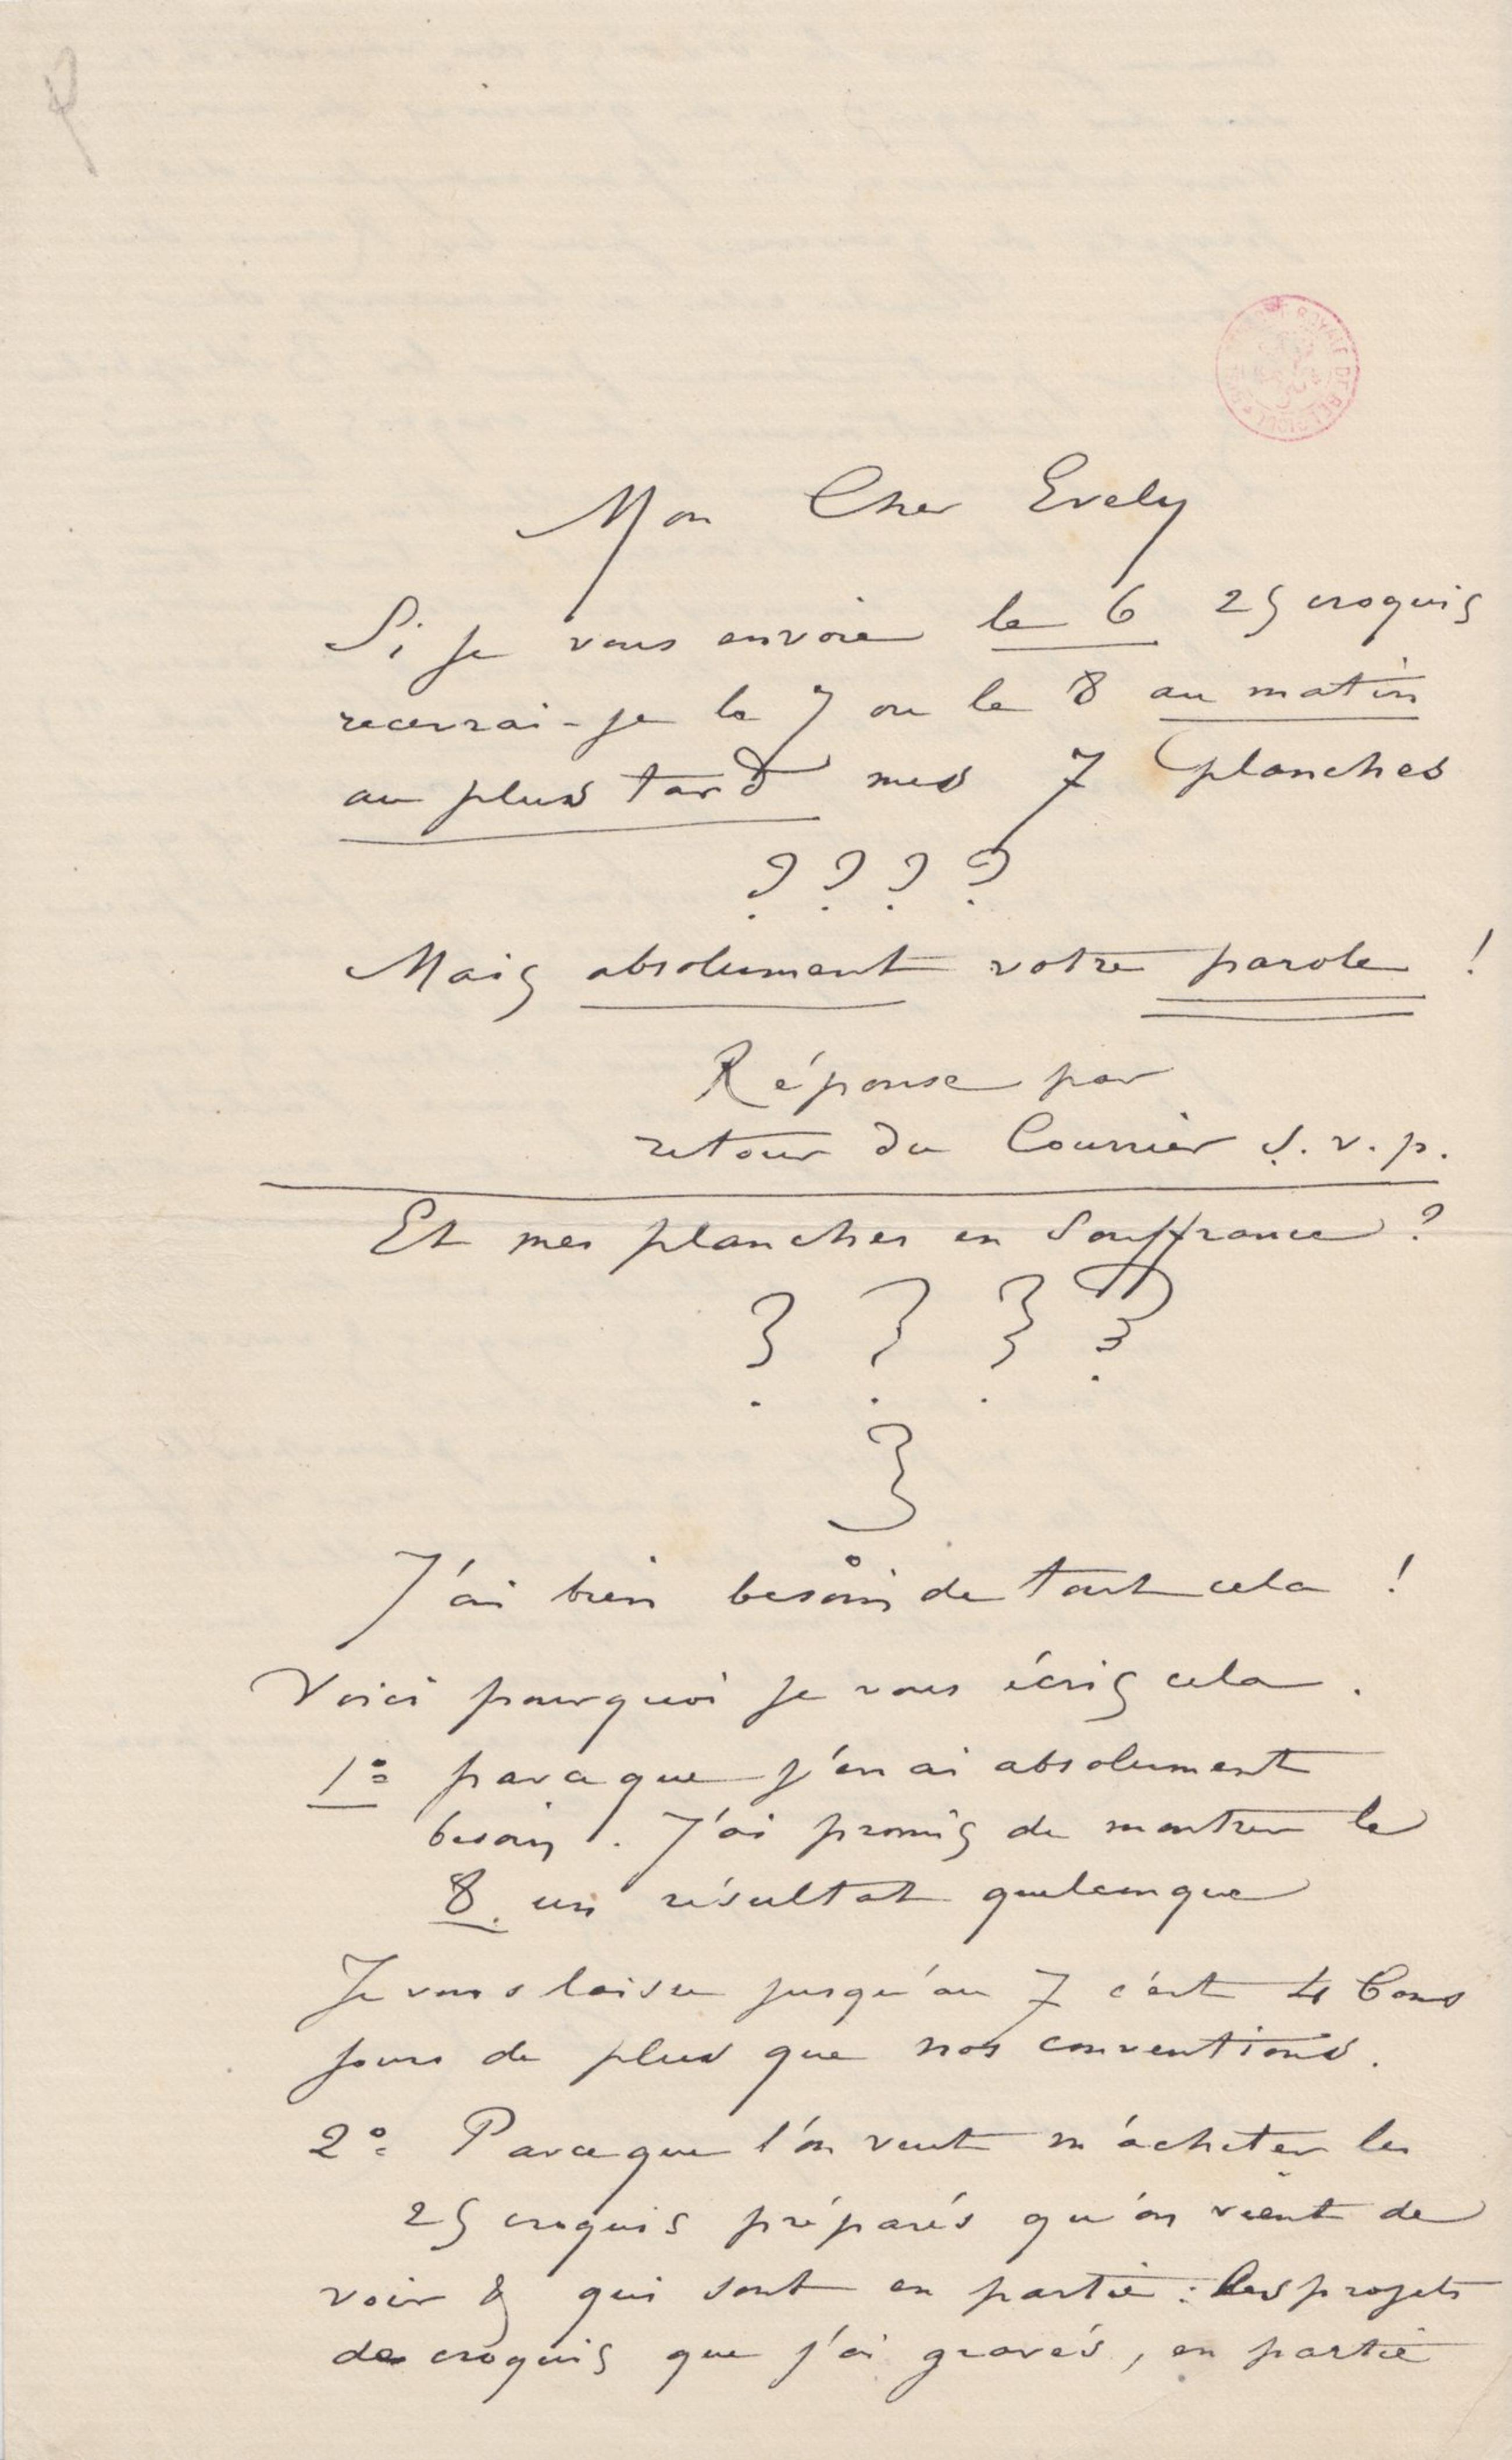 BIBLIOTHÈQUE ROYALE DE BELGIQUE
Mon Cher Evely
Si je vous envoie le 6 25 croquis
recevrai-je le 7 ou le 8 au matin
au plus tard mes 7 planches
? ? ? ?
Mais absolument votre parole !
Réponse par
retour du Courrier S.v.p.
Et mes planches en Souffrance ?
? ? ? ?
?
J'ai bien besoin de tout cela !
Voici pourquoi je vous écris cela.
1° parceque j'en ai absolument
besoin. J'ai promis de montrer le
8. un résultat quelconque
Je vous laisse jusqu'au 7 c'est 4 bons
jours de plus que nos conventions.
2° Parceque l'on veut m'acheter les
25 croquis préparés qu'on vient de
voir & qui sont en partie : les projets
de croquis que j'ai gravés, en partie